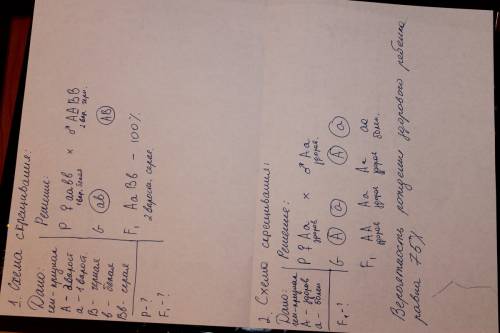 1. Схема скрещивания:
Дано:
ген-признак
А - 2 ворот.
а - 1 ворот.
В - черная
в - белая
Вв - серая
P - ?
F₁ - ?
Решение:
P ♀ аавв × ♂ ААВВ
1 вор. белая 2 вор. черн.
G ав АВ
F₁ АаВв - 100%
2 ворот. серое.
2. Схема скрещивания:
Дано:
ген-признак
А - здоров
а - болен
F₁ - ?
Решение:
P ♀ Аа × ♂ Аа
здоров здоров.
G А а А а
F₁ АА Аа Аа аа
здоров здоров здоров болен.
Вероятность рождения здорового ребенка
равна 75%